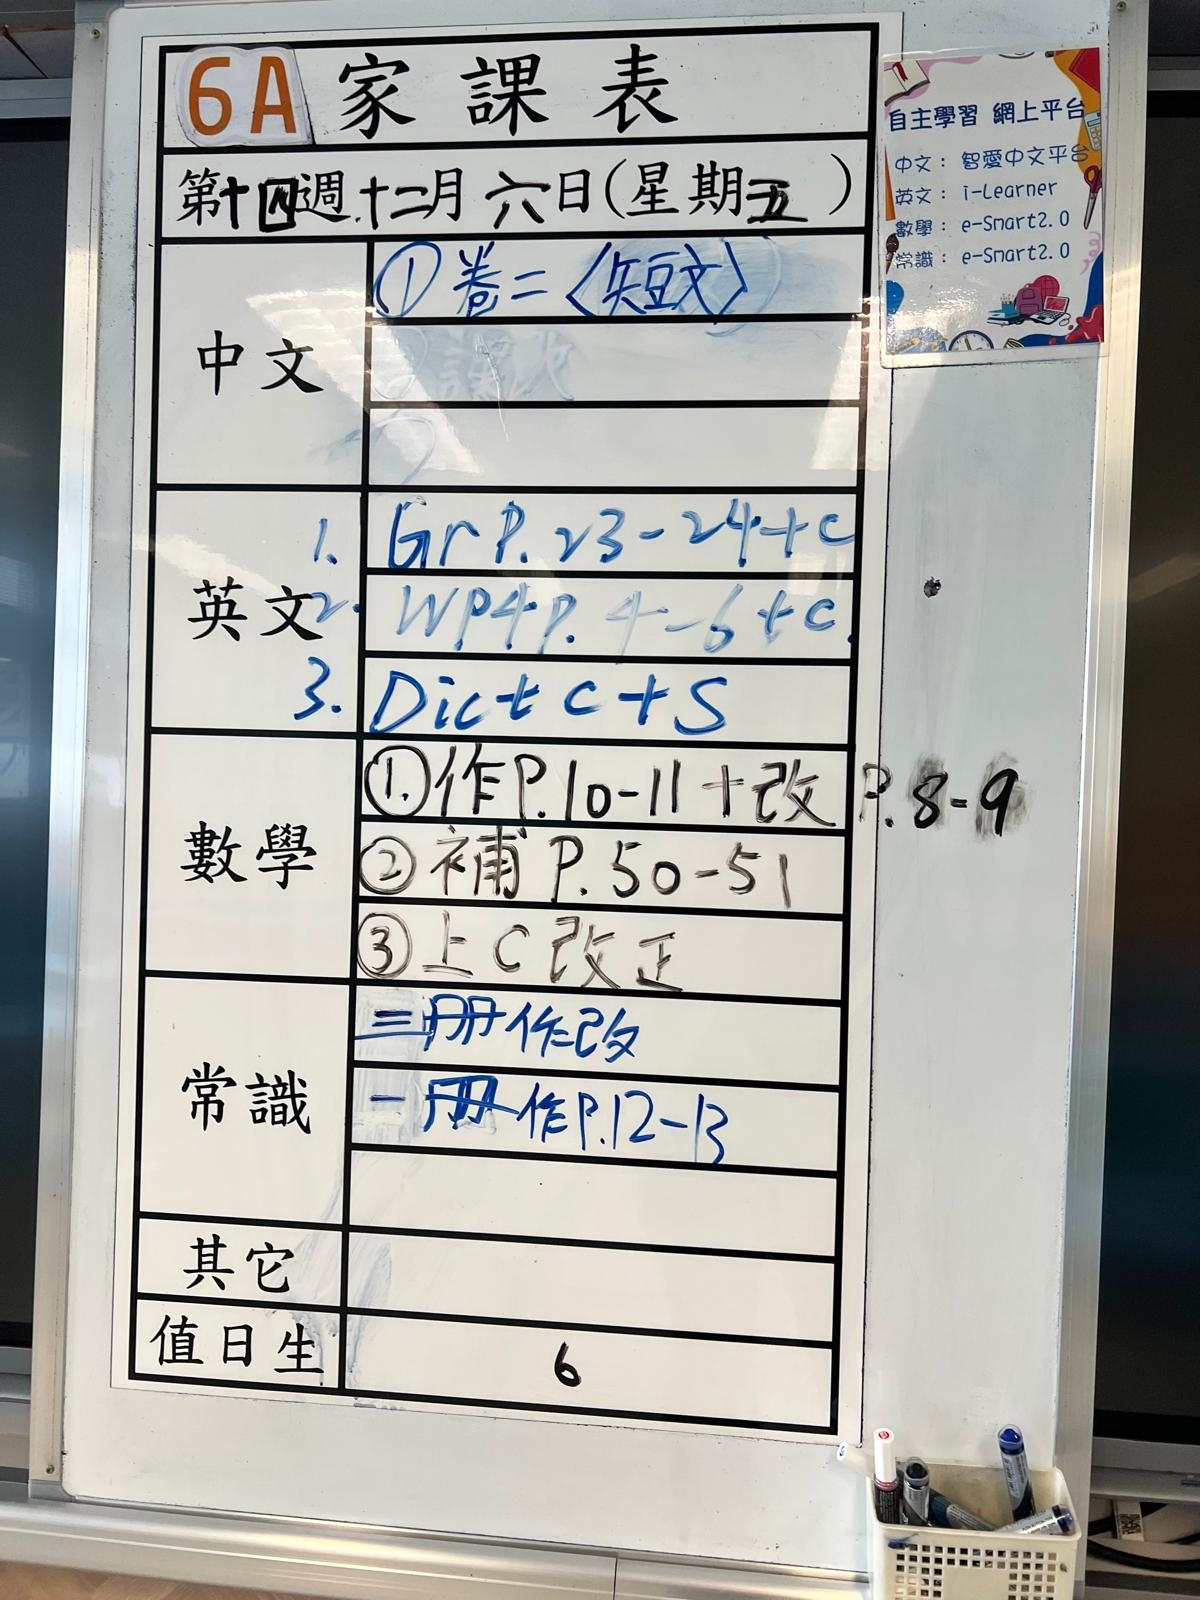 6A 家課表
第十四週 十二月 六日(星期五)
中文
① 卷二〈短文〉
英文
1. Gr P. 23-24+c
2. WP4 P. 4-6+c.
3. Dict c+S
數學
①. 作P.10-11+改 P. 8-9
② 補 P. 50-51
③ 上C改正
常識
三冊作改
一冊作P.12-13
其它
值日生
6
自主學習 網上平台
中文： 智愛中文平台
英文： i-Learner
數學： e-Smart2.0
常識： e-Smart2.0